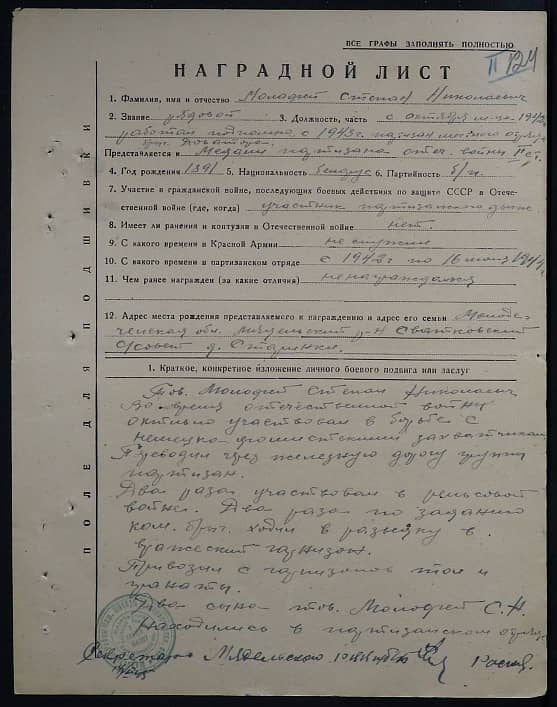 ВСЕ ГРАФЫ ЗАПОЛНЯТЬ ПОЛНОСТЬЮ
II 124
НАГРАДНОЙ ЛИСТ
1. Фамилия, имя и отчество Молодцет Степан Николаевич
2. Звание рядовой 3. Должность, часть с октября м-ца 1942
работал с 1943г. партизан отряда
бриг.
Представляется к Медали партизана отеч. войны II ст.
4. Год рождения 1891 5. Национальность белорус 6. Партийность б/п.
7. Участие в гражданской войне, последующих боевых действиях по защите СССР в Отече-
ственной войне (где, когда) участник партизанского движ
8. Имеет ли ранения и контузии в Отечественной войне нет.
9. С какого времени в Красной Армии не служил
10. С какого времени в партизанском отряде с 1942г по 16 июля 1944г.
11. Чем ранее награжден (за какие отличия) не награждался
12. Адрес места рождения представляемого к награждению и адрес его семьи Молоде-
ченская обл. Мядельский р-н Сватковский
с/совет д.
1. Краткое, конкретное изложение личного боевого подвига или заслуг
Тов. Молодцет Степан Николаевич
Во время отечественной войны
активно участвовал в борьбе с
немецко-фашистскими захватчиками
Переводил через железную дорогу группы
партизан.
Два раза участвовал в рельсовой
войне. Два раза по заданию
ком. бриг. ходил в разведку в
вражеский гарнизон.
Привозил с гарнизонов тол и
гранаты.
Два сына тов. Молодцет С.Н.
находились в партизанском отряде
Секретарь Мядельского
ПОЛЕ ДЛЯ ПОДШИВКИ